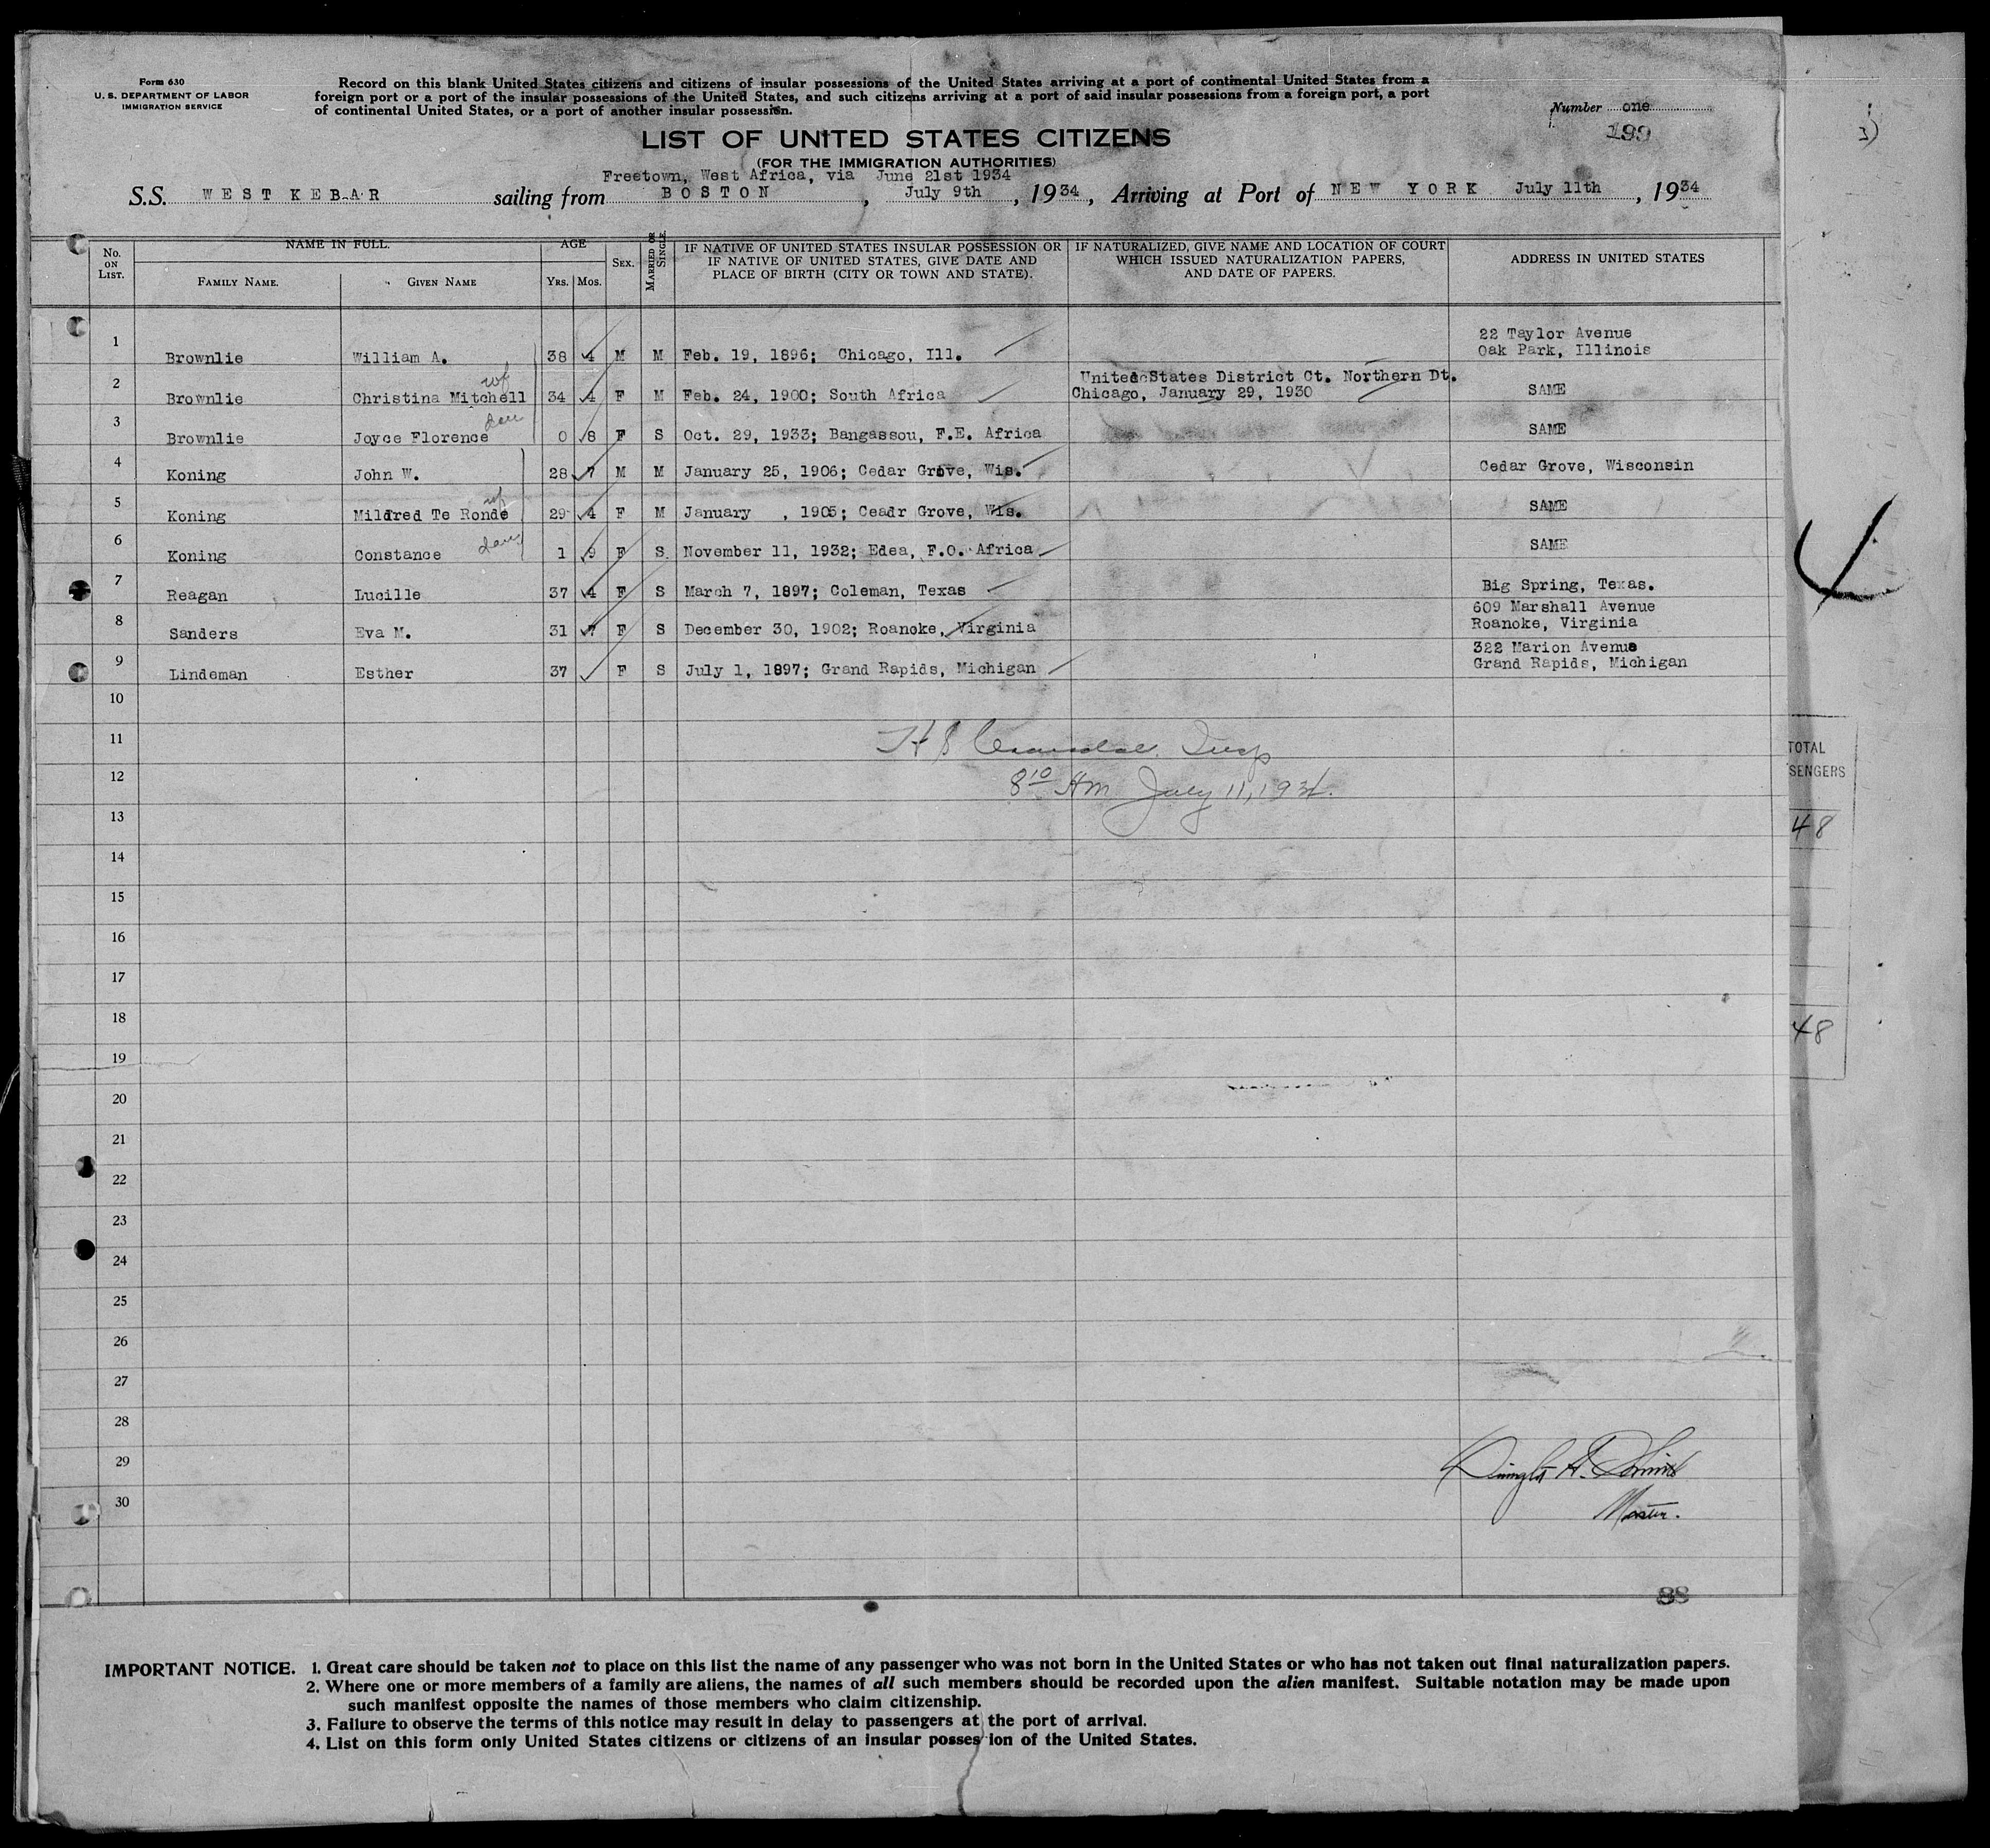 Form 630
U. S. DEPARTMENT OF LABOR
IMMIGRATION SERVICE
Record on this blank United States citizens and citizens of insular possessions of the United States arriving at a port of continental United States from a
foreign port or a port of the insular possessions of the United States, and such citizens arriving at a port of said insular possessions from a foreign port, a port
of continental United States, or a port of another insular possession.
Number one
199
LIST OF UNITED STATES CITIZENS
(FOR THE IMMIGRATION AUTHORITIES)
Freetown, West Africa, via June 21st 1934
S.S. WEST KEBAR sailing from BOSTON, July 9th, 1934, Arriving at Port of NEW YORK July 11th, 1934
No. ON LIST. NAME IN FULL. AGE SEX. MARRIED OR SINGLE. IF NATIVE OF UNITED STATES INSULAR POSSESSION OR IF NATIVE OF UNITED STATES, GIVE DATE AND PLACE OF BIRTH (CITY OR TOWN AND STATE). IF NATURALIZED, GIVE NAME AND LOCATION OF COURT WHICH ISSUED NATURALIZATION PAPERS, AND DATE OF PAPERS. ADDRESS IN UNITED STATES
FAMILY NAME. GIVEN NAME YRS. MOS.
1 Brownlie William A. 38 4 M M Feb. 19, 1896; Chicago, Ill. 22 Taylor Avenue Oak Park, Illinois
2 Brownlie Christina Mitchell wf 34 4 F M Feb. 24, 1900; South Africa United States District Ct. Northern Dt. Chicago, January 29, 1930 SAME
3 Brownlie Joyce Florence dau 0 8 F S Oct. 29, 1933; Bangassou, F.E. Africa SAME
4 Koning John W. 28 7 M M January 25, 1906; Cedar Grove, Wis. Cedar Grove, Wisconsin
5 Koning Mildred Te Ronde wf 29 4 F M January , 1905; Ceadr Grove, Wis. SAME
6 Koning Constance dau 1 9 F S. November 11, 1932; Edea, F.O. Africa SAME
7 Reagan Lucille 37 4 F S March 7, 1897; Coleman, Texas Big Spring, Texas.
8 Sanders Eva M. 31 7 F S December 30, 1902; Roanoke, Virginia 609 Marshall Avenue Roanoke, Virginia
9 Lindeman Esther 37 F S July 1, 1897; Grand Rapids, Michigan 322 Marion Avenue Grand Rapids, Michigan
10
11 Insp
12 8 10 AM July 11, 1934.
13
14
15
16
17
18
19
20
21
22
23
24
25
26
27
28
29
30 Master.
TOTAL
SENGERS
48
48
88
IMPORTANT NOTICE. 1. Great care should be taken not to place on this list the name of any passenger who was not born in the United States or who has not taken out final naturalization papers.
2. Where one or more members of a family are aliens, the names of all such members should be recorded upon the alien manifest. Suitable notation may be made upon
such manifest opposite the names of those members who claim citizenship.
3. Failure to observe the terms of this notice may result in delay to passengers at the port of arrival.
4. List on this form only United States citizens or citizens of an insular possession of the United States.